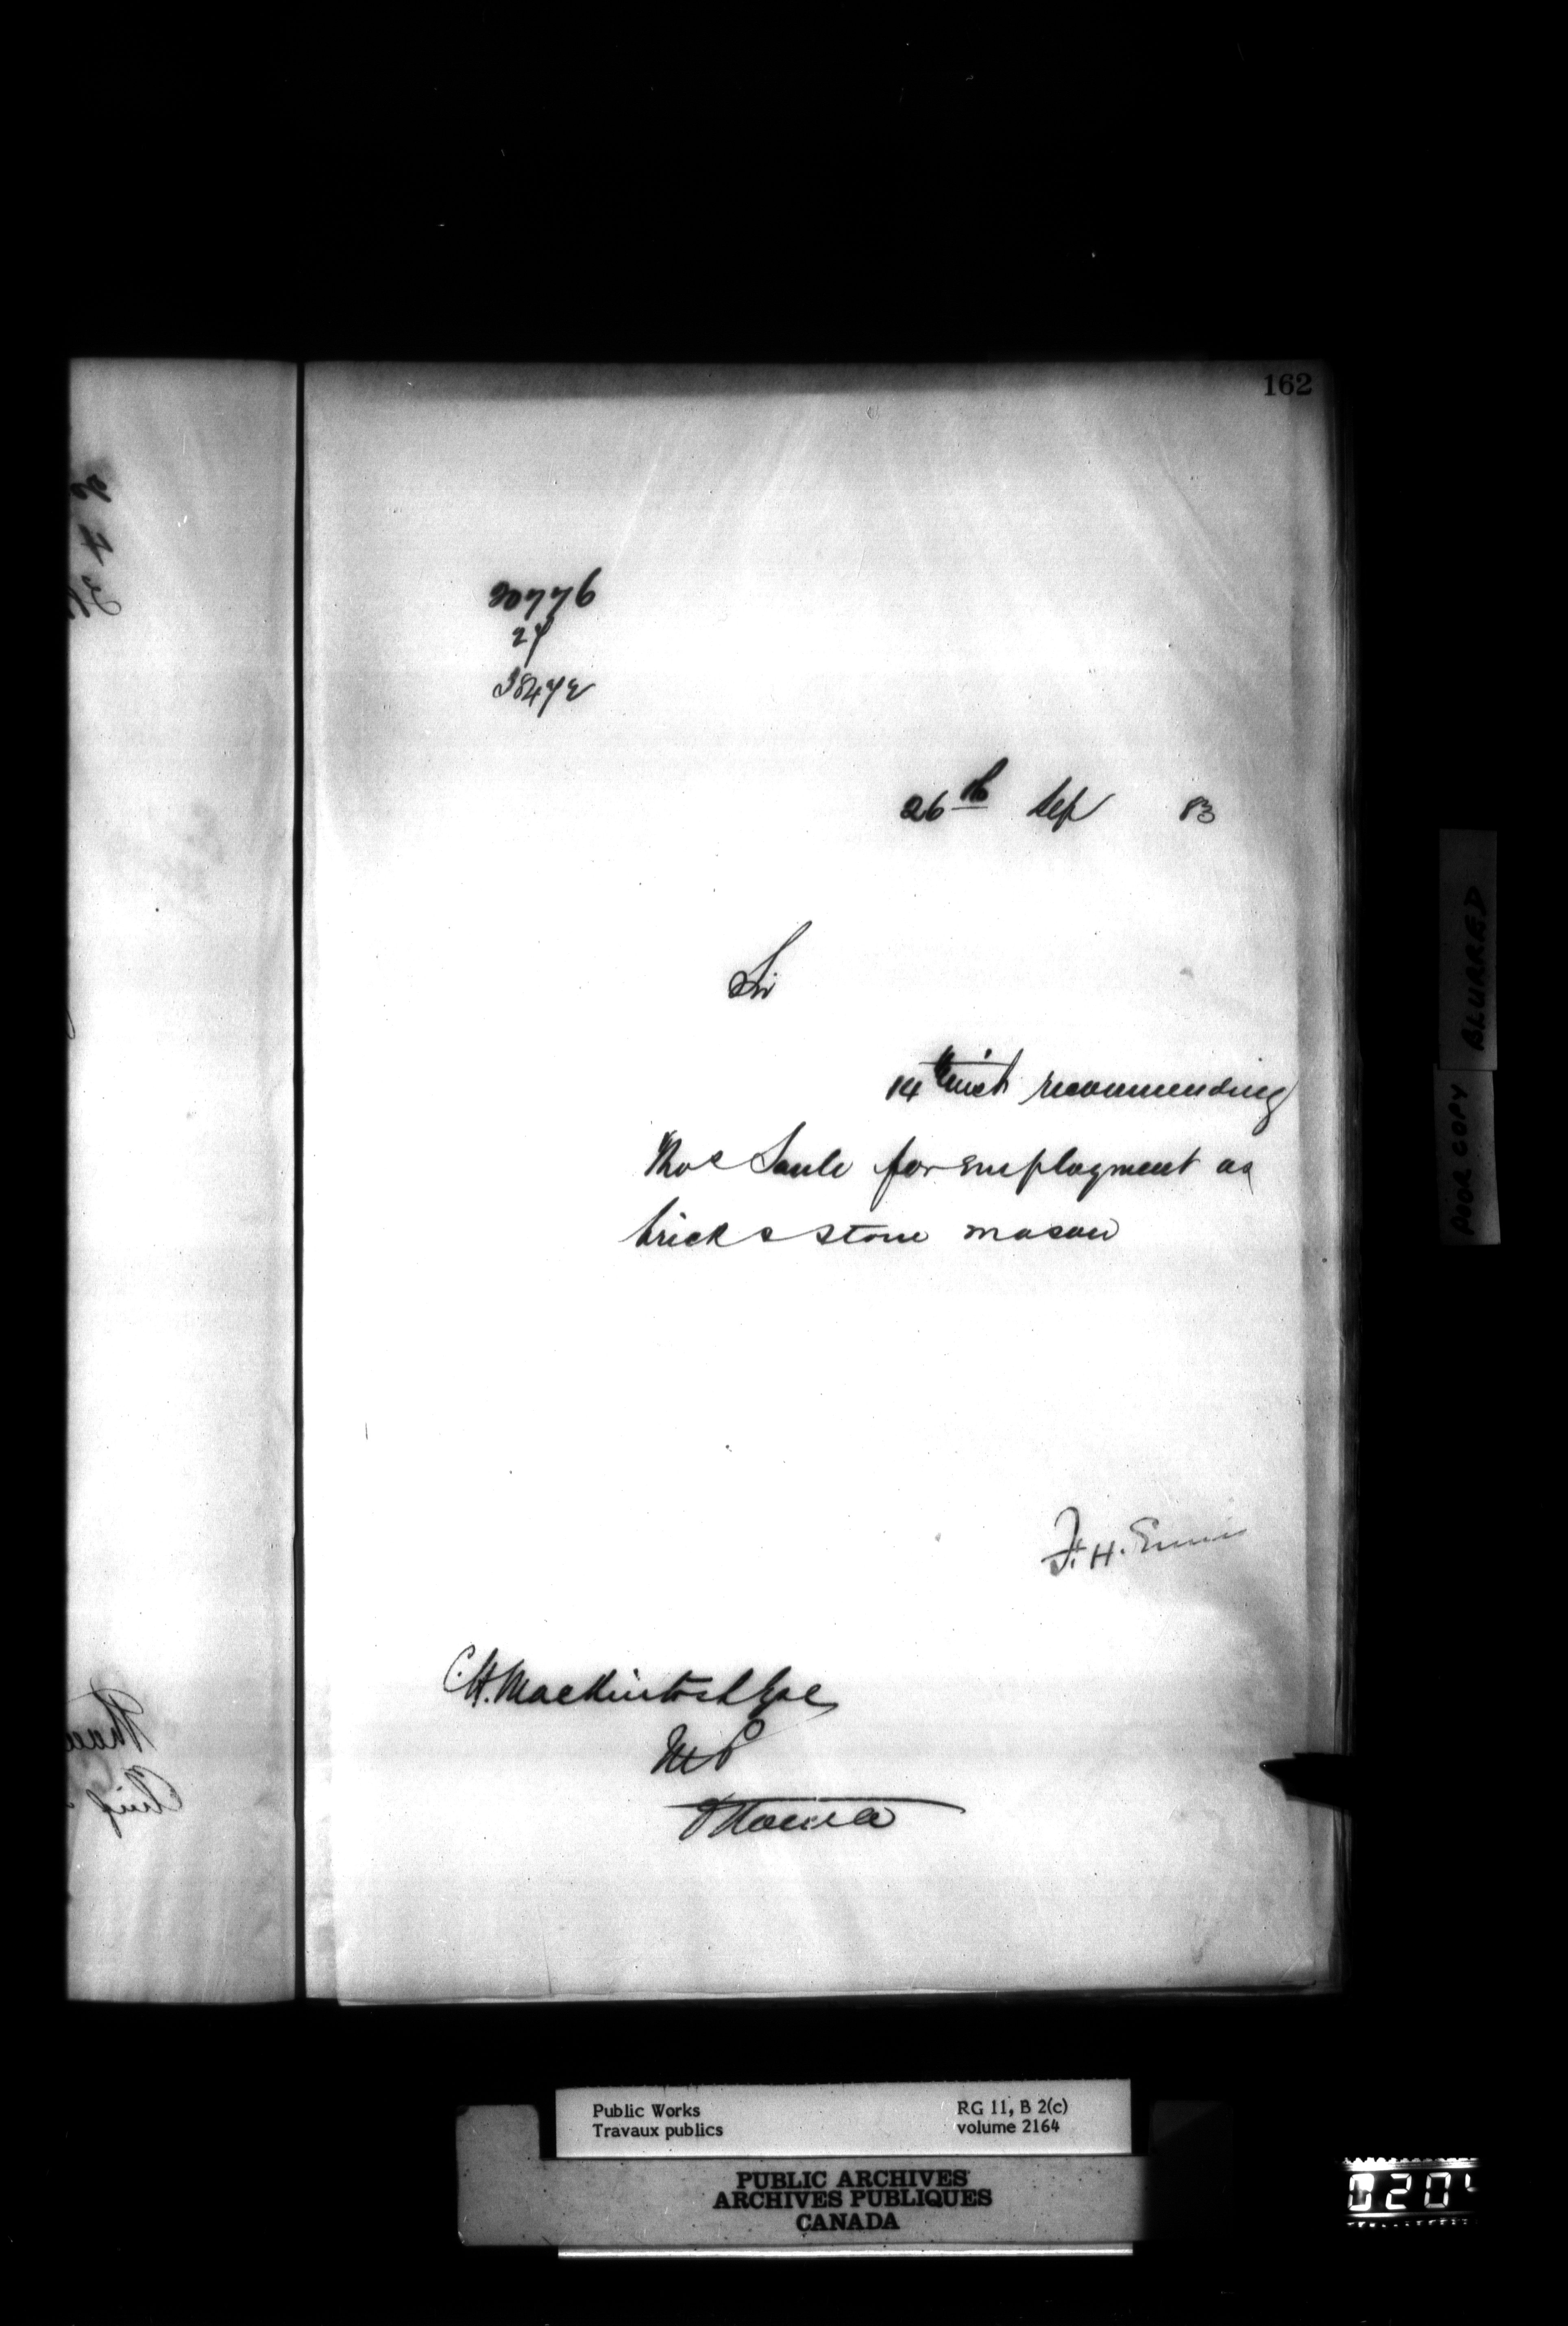 162
20776
27
38472
26th Sep 83
Sir
14th inst recommending
Thos Saule for employment as
brick & stone mason
F. H. Ennis
C. H. Mackintosh Esq
M P
Ottawa
BLURRED
POOR COPY
Public Works
Travaux publics
RG 11, B 2(c)
volume 2164
PUBLIC ARCHIVES
ARCHIVES PUBLIQUES
CANADA